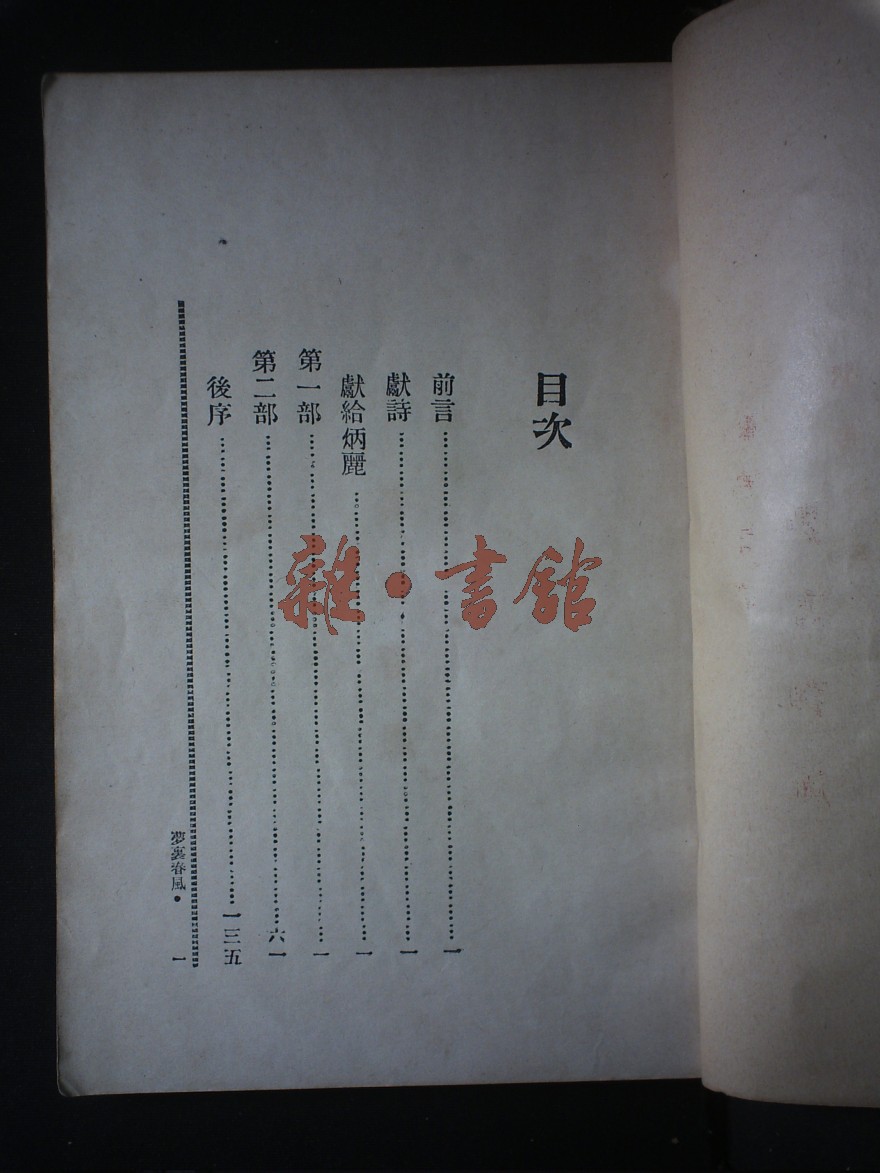 目次
前言……一
獻詩……一
獻給炳麗……一
第一部……一
第二部……六一
後序……一三五
夢裏春風・ 一
雜・書館